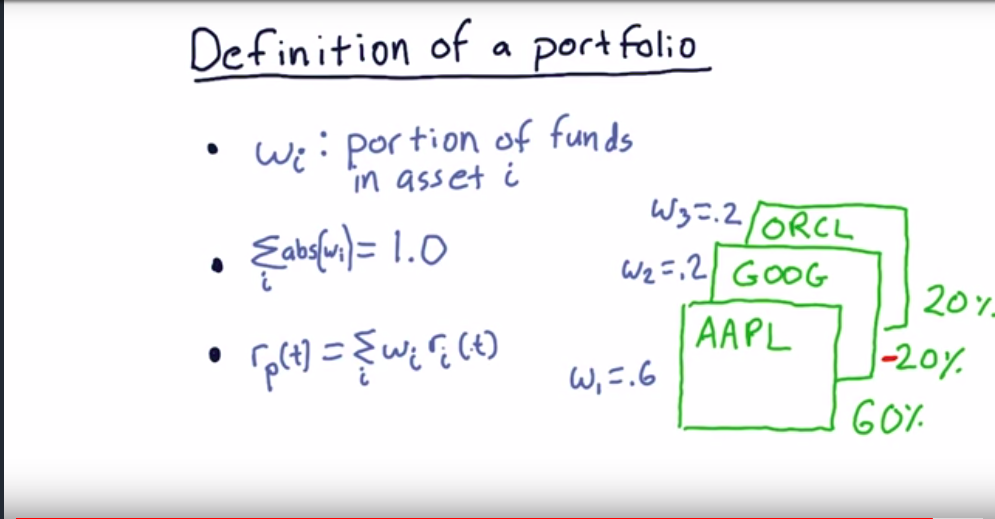 Definition of a portfolio
• wᵢ: portion of funds
in asset i
• Σᵢ abs(wᵢ) = 1.0
• rₚ(t) = Σᵢ wᵢ rᵢ(t)
w₃=.2 ORCL
w₂=.2 GOOG
20%
AAPL
-20%
w₁=.6
60%